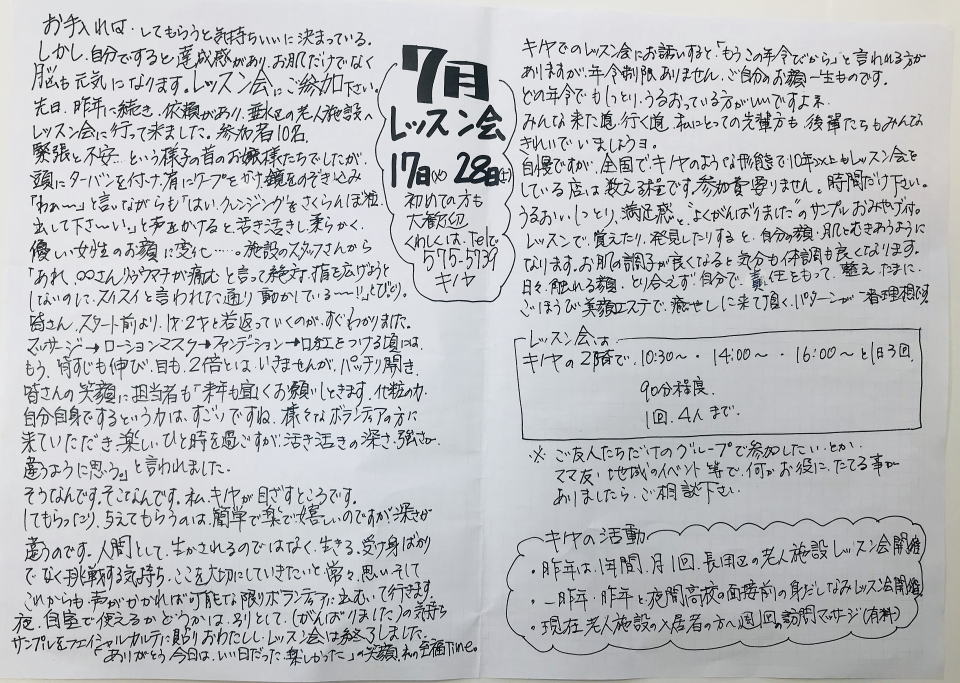 お手入れは、してもらうと気持ちいいに決まっている。
しかし、自分ですると達成感があり、お肌だけでなく
脳も元気になります。レッスン会にご参加下さい。
先日、昨年に続き、依頼があり、垂水区の老人施設へ
レッスン会に行って来ました。参加者10名。
緊張と不安…という様子の昔のお嬢様たちでしたが、
頭にターバンを付け、肩にケープをかけ、鏡をのぞき込み
「わぁ〜」と言いながらも「はい、クレンジングをさくらんぼ粒
出して下さ〜い」と声をかけると、活き活きし、柔らかく、
優しい女性のお顔に変化……。施設のスタッフさんから
「あれ、〇〇さん、リュウマチが痛むと言って絶対、指を広げようと
しないのに、スイスイと言われた通り動かしている〜!!」とびっくり。
皆さん、スタート前より、1才、2才と若返っていくのが、すぐわかりました。
マッサージ→ローションマスク→ファンデーション→口紅をつける頃には、
もう、背すじも伸び、目も、2倍とは、いきませんが、パッチリ開き、
皆さんの笑顔に担当者も「来年も宜しくお願いしときます。化粧の力、
自分自身でするという力は、すごいですね。様々なボランティアの方に
来ていただき、楽しいひと時を過ごすが、活き活きの深さ、強さが、
違うように思う。」と言われました。
そうなんです。そこなんです。私、キノヤが目ざすところです。
してもらったり、与えてもらうのは、簡単で楽で嬉しいのですが、深さが
違うのです。人間として、生かされるのではなく、生きる。受け身ばかり
でなく、挑戦する気持ち、ここを大切にしていきたいと常々、思い、そして
これからも、声がかかれば可能な限りボランティアに出むいて行きます。
夜、自室で使えるかどうかは、別として、(がんばりました)の気持ち
サンプルをフェイシャルカルテに貼り、おわたしし、レッスン会は終了しました。
「ありがとう、今日は、いい日だった、楽しかった」の笑顔、私の至福Time。
7月
レッスン会
17日(火) 28日(土)
初めての方も
大歓迎
くわしくは、Telで
575-5739
キノヤ
キノヤでのレッスン会にお誘いすると、「もうこの年令でしから」と言われる方が
ありますが、年令制限ありません。ご自分のお顔、一生ものです。
どの年令でも、しっとり、うるおっている方がいいですよネ。
みんな来た道、行く道、私にとっての先輩方も、後輩たちもみんな
きれいでいましょうヨ。
自慢ですが、全国でキノヤのような形態で10年以上もレッスン会を
している店は、数える程です。参加費要りません。時間だけ下さい。
うるおい、しっとり、満足感と“よくがんばりました”のサンプルおみやげ付。
レッスンで、覚えたり、発見したりすると、自分の顔・肌とむきあうように
なります。お肌の調子が良くなると気分も体調も良くなります。
日々、触れる顔、とりあえず自分で、責任をもって、整え、たまに、
ごほうび美顔エステで、癒せしに来て頂く、パターンが一番理想です。
レッスン会は
キノヤの2階で、10:30〜・14:00〜・16:00〜と1日3回、
90分程度、
1回、4人まで。
※ ご友人たちだけのグループで参加したいとか、
ママ友・地域のイベント等で、何かお役に、たてる事が
ありましたら、ご相談下さい。
キノヤの活動
・昨年は、1年間、月1回、長田区の老人施設 レッスン会開催
・一昨年・昨年と夜間高校の面接前の身だしなみレッスン会開催
・現在、老人施設の入居者の方へ週1回の訪問マッサージ(有料)